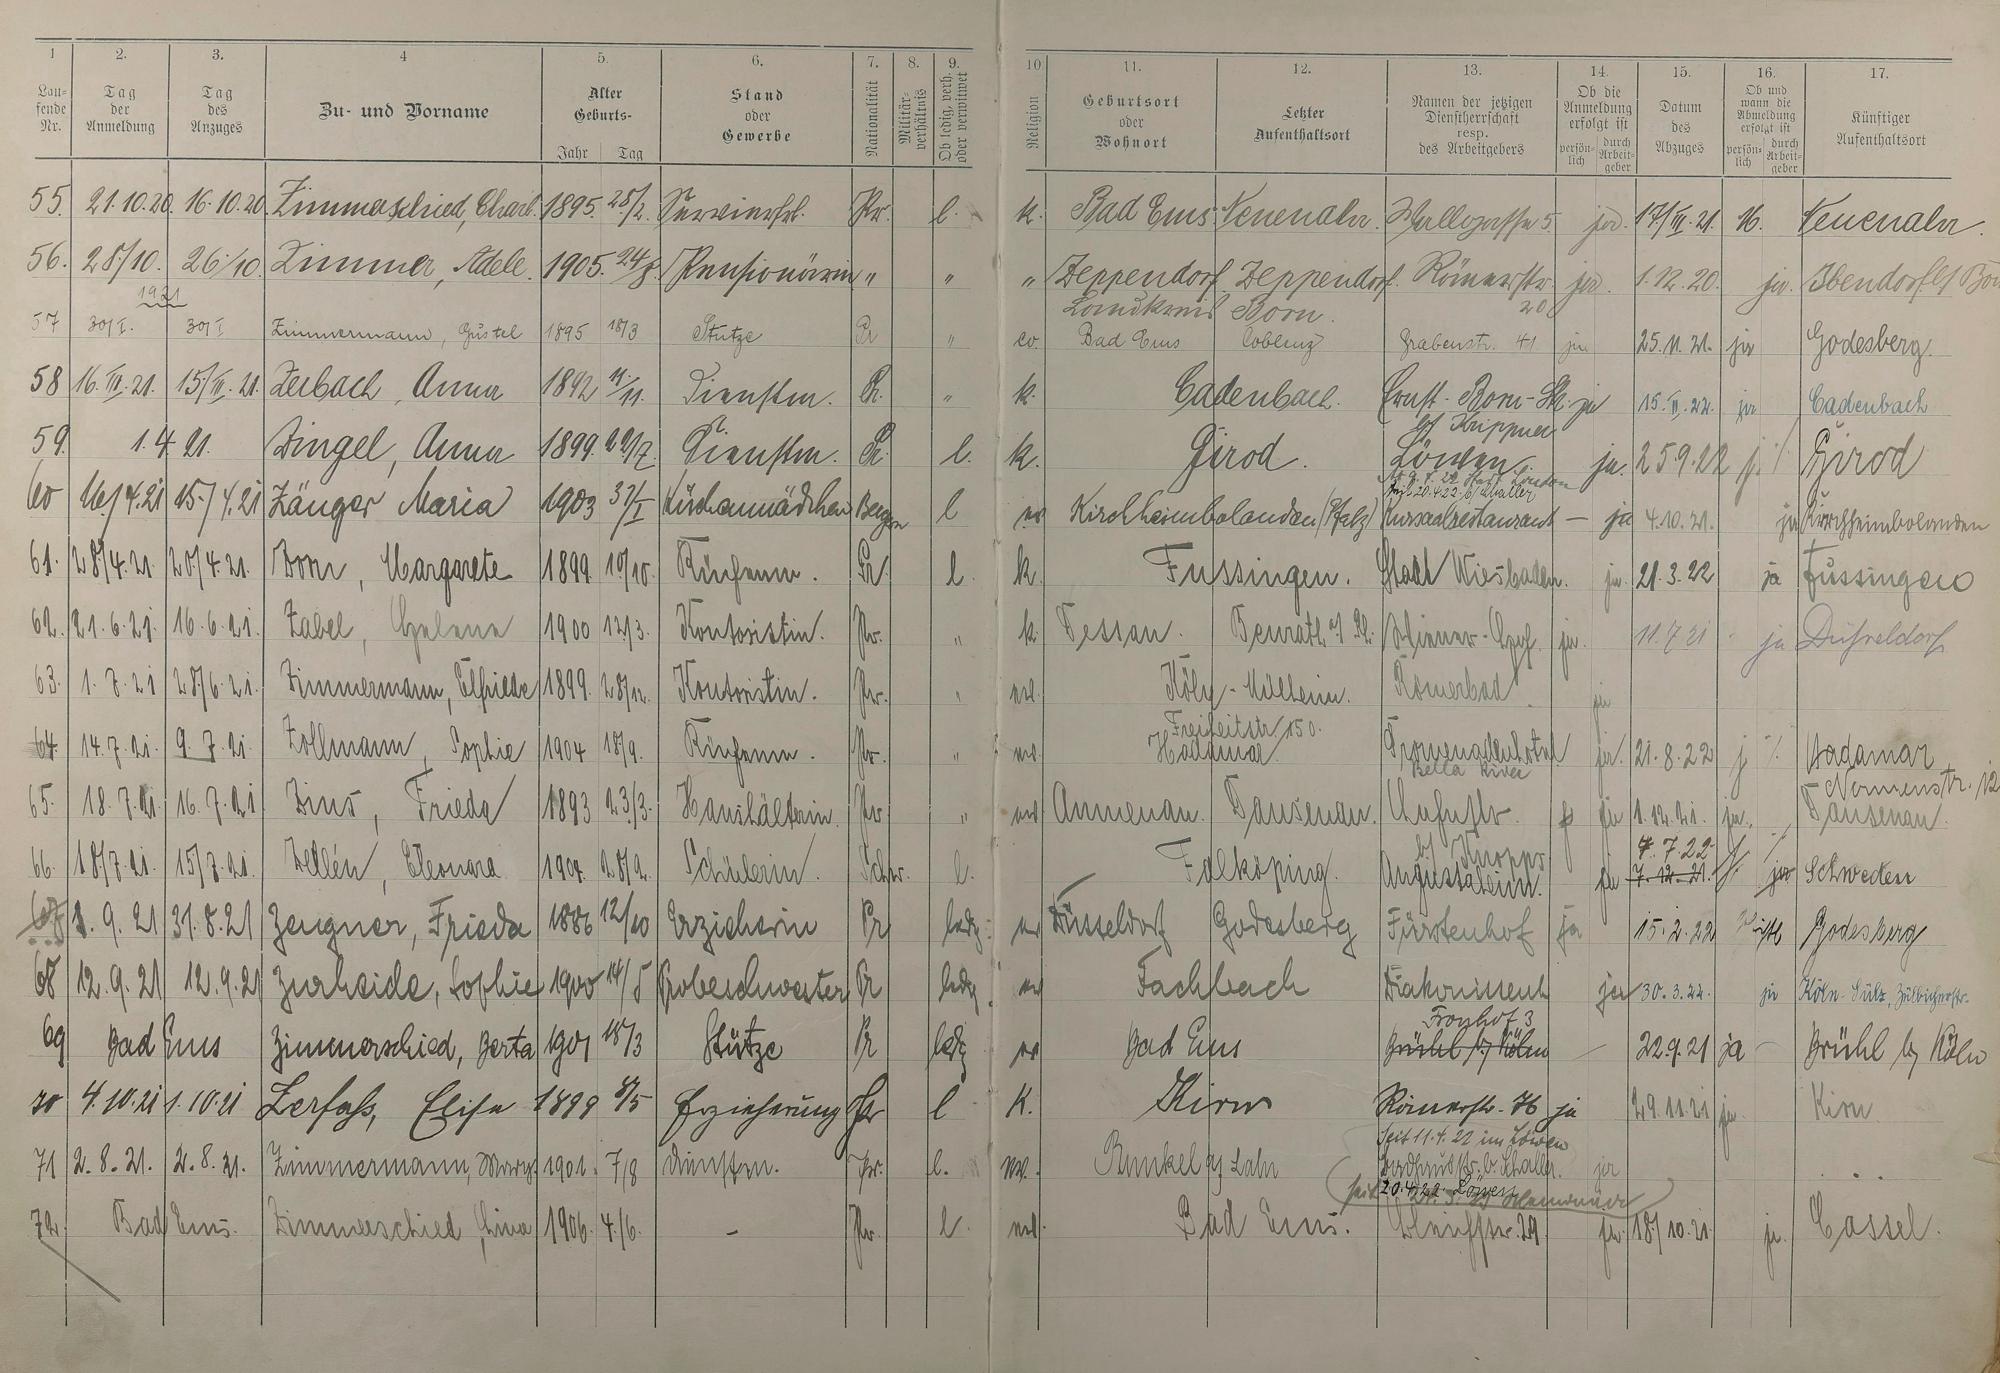 1 2. 3. 4 5. 6. 7. 8. 9. 10 11. 12. 13. 14. 15. 16. 17.
Lau- fende Nr. Tag der Anmeldung Tag des Anzuges Zu- und Vorname Alter Geburts- Jahr Tag Stand oder Gewerbe Nationalität Militär- verhältnis Ob ledig, verh. oder verwitwet Religion Geburtsort oder Wohnort Letzter Aufenthaltsort Namen der jetzigen Dienstherrschaft resp. des Arbeitgebers Ob die Anmeldung erfolgt ist persön- lich durch Arbeit- geber Datum des Abzuges Ob und wann die Abmeldung erfolgt ist persön- lich durch Arbeit- geber Künftiger Aufenthaltsort
55. 21.10.20. 16.10.20. Zimmerschied, Charl. 1895. 28/2. Servierfrl. Pr. l. k. Bad Ems. Neuenahr. Wallgasse 5. ja. 17/III.21. Neuenahr.
56. 28./10. 26./10. Zimmer, Adele 1905. 24/8. Pensionärin " " " Zeppendorf Zeppendorf. Römerstr. ja. 1.12.20. ja.
1921 Landkreis Bonn. 20
57 30/I. 30/I Zimmermann, Gustel 1895 18/3 Stütze Pr " ev. Bad Ems Coblenz Grabenstr. 41 ja 25.11.21. ja Godesberg.
58 16.III.21. 15/III.21. Zerbach, Anna 1892 11./11. Dienstm. Pr. " k. Cadenbach. Ernst-Born-Str. ja 15.II.22. ja Cadenbach
bei Krippner
59. 1.4.21. Zingel, Anna 1899. 29/7. Dienstm. Pr. l. k. Girod. Löwen. ja. 25.9.22 j. /. Girod
60 16/4.21 15./4.21 Zänger Maria 1903 31/I Küchenmädchen Bayern l ev Kirchheimbolanden (Pfalz) Kursaalrestaurant — ja 4.10.21. ja Kirchheimbolanden
61. 28/4.21. 20/4.21. Born, Margarete 1899. 10/10. Küchenm. Pr. l. k. Fussingen. Stadt Wiesbaden. ja. 21.3.22 ja Fussingen
62. 21.6.21. 16.6.21. Zabel, Helene 1900 12/3. Kontoristin. Pr. " k. Dessau. Benrath a/ Rh. ja. 11.7.21 ja Düsseldorf
63. 1.7.21 28/6.21. Zimmermann, Elfriede 1899. 28/12. Kontoristin. Pr. " ev. Köln-Mülheim. Römerbad ja
Freiheitstr. 150.
64 14.7.21. 9.7.21. Zollmann, Sophie 1904 18/9. Küchenm. Pr. " ev. Hadamar Promenadenhotel ja. 21.8.22 j /. Hadamar
Bella Riva Nonnenstr. 12
65. 18.7.21. 16.7.21 Zins, Frieda 1893 23/3. Haushälterin. Pr " ev Aumenau. Dausenau. ja 1.12.21. ja. Dausenau.
4.7.22. /.
66. 18/7.21. 15/7.21 Zellén, Eleonora 1904. 28/2. Schülerin. Schw. l. Falköping. Augustaheim. ja 7.12.21. ja Schweden
67 1.9.21 31.8.21 Zeugner, Frieda 1886 12/10 Erzieherin Pr ledg. ev Düsseldorf Godesberg Fürstenhof ja 15.2.22 Godesberg
68 12.9.21 12.9.21 Zurheide, Sophie 1900 14/5 Probeschwester Pr ledg. ev Fachbach Diakonissenh ja 30.3.22. ja Köln-Sülz, Zülbicherstr.
Fronhof 3
69 Bad Ems Zimmerschied, Berta 1901 18/3 Stütze Pr ledg ev Bad Ems Brühl bj Köln — 22.9.21 ja — Brühl bj Köln
70 4.10.21 1.10.21 Zerfaß, Elise 1899 8/5 Erzieherung Pr l K. Kirn Römerstr. 76 ja 29.11.21 ja. Kirn
Seit 11.4.22 im Löwen
71 2.8.21. 2.8.21. Zimmermann, Mary. 1901. 7/8 Dienstm. Pr. l. ev. Runkel a/ Lahn b. Schaller. ja
seit 20.4.22 Löwen
72. Bad Ems. Zimmerschied, Lina 1906. 4./6. — Pr. l ev. Bad Ems. Bleichstr. 29 ja 18/10.21 ja. Cassel.